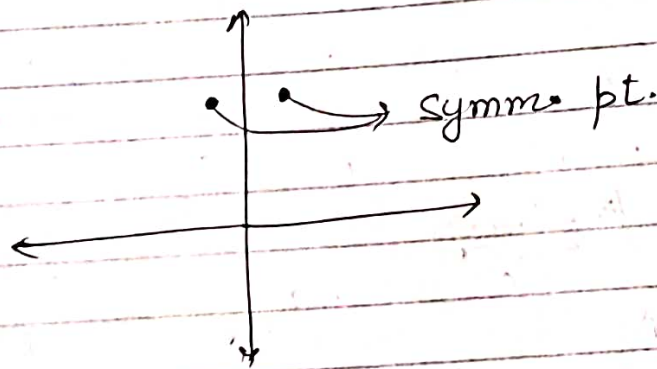 symm. pt.